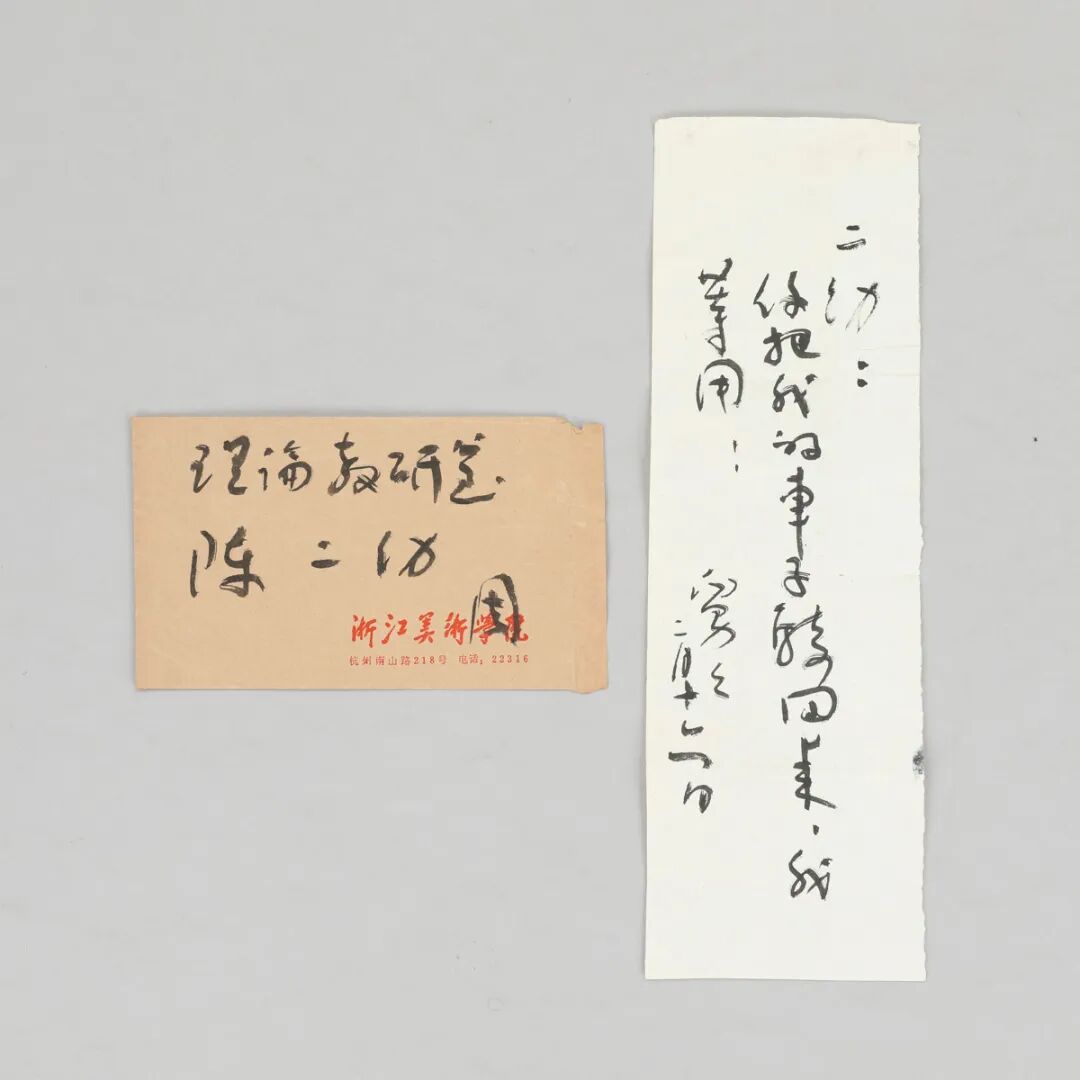 理論教研室
陈二幼
周
浙江美術學院
杭州南山路218号 电话：22316
二幼：
你把我的車子騎回来，我
等用！
二月十六日